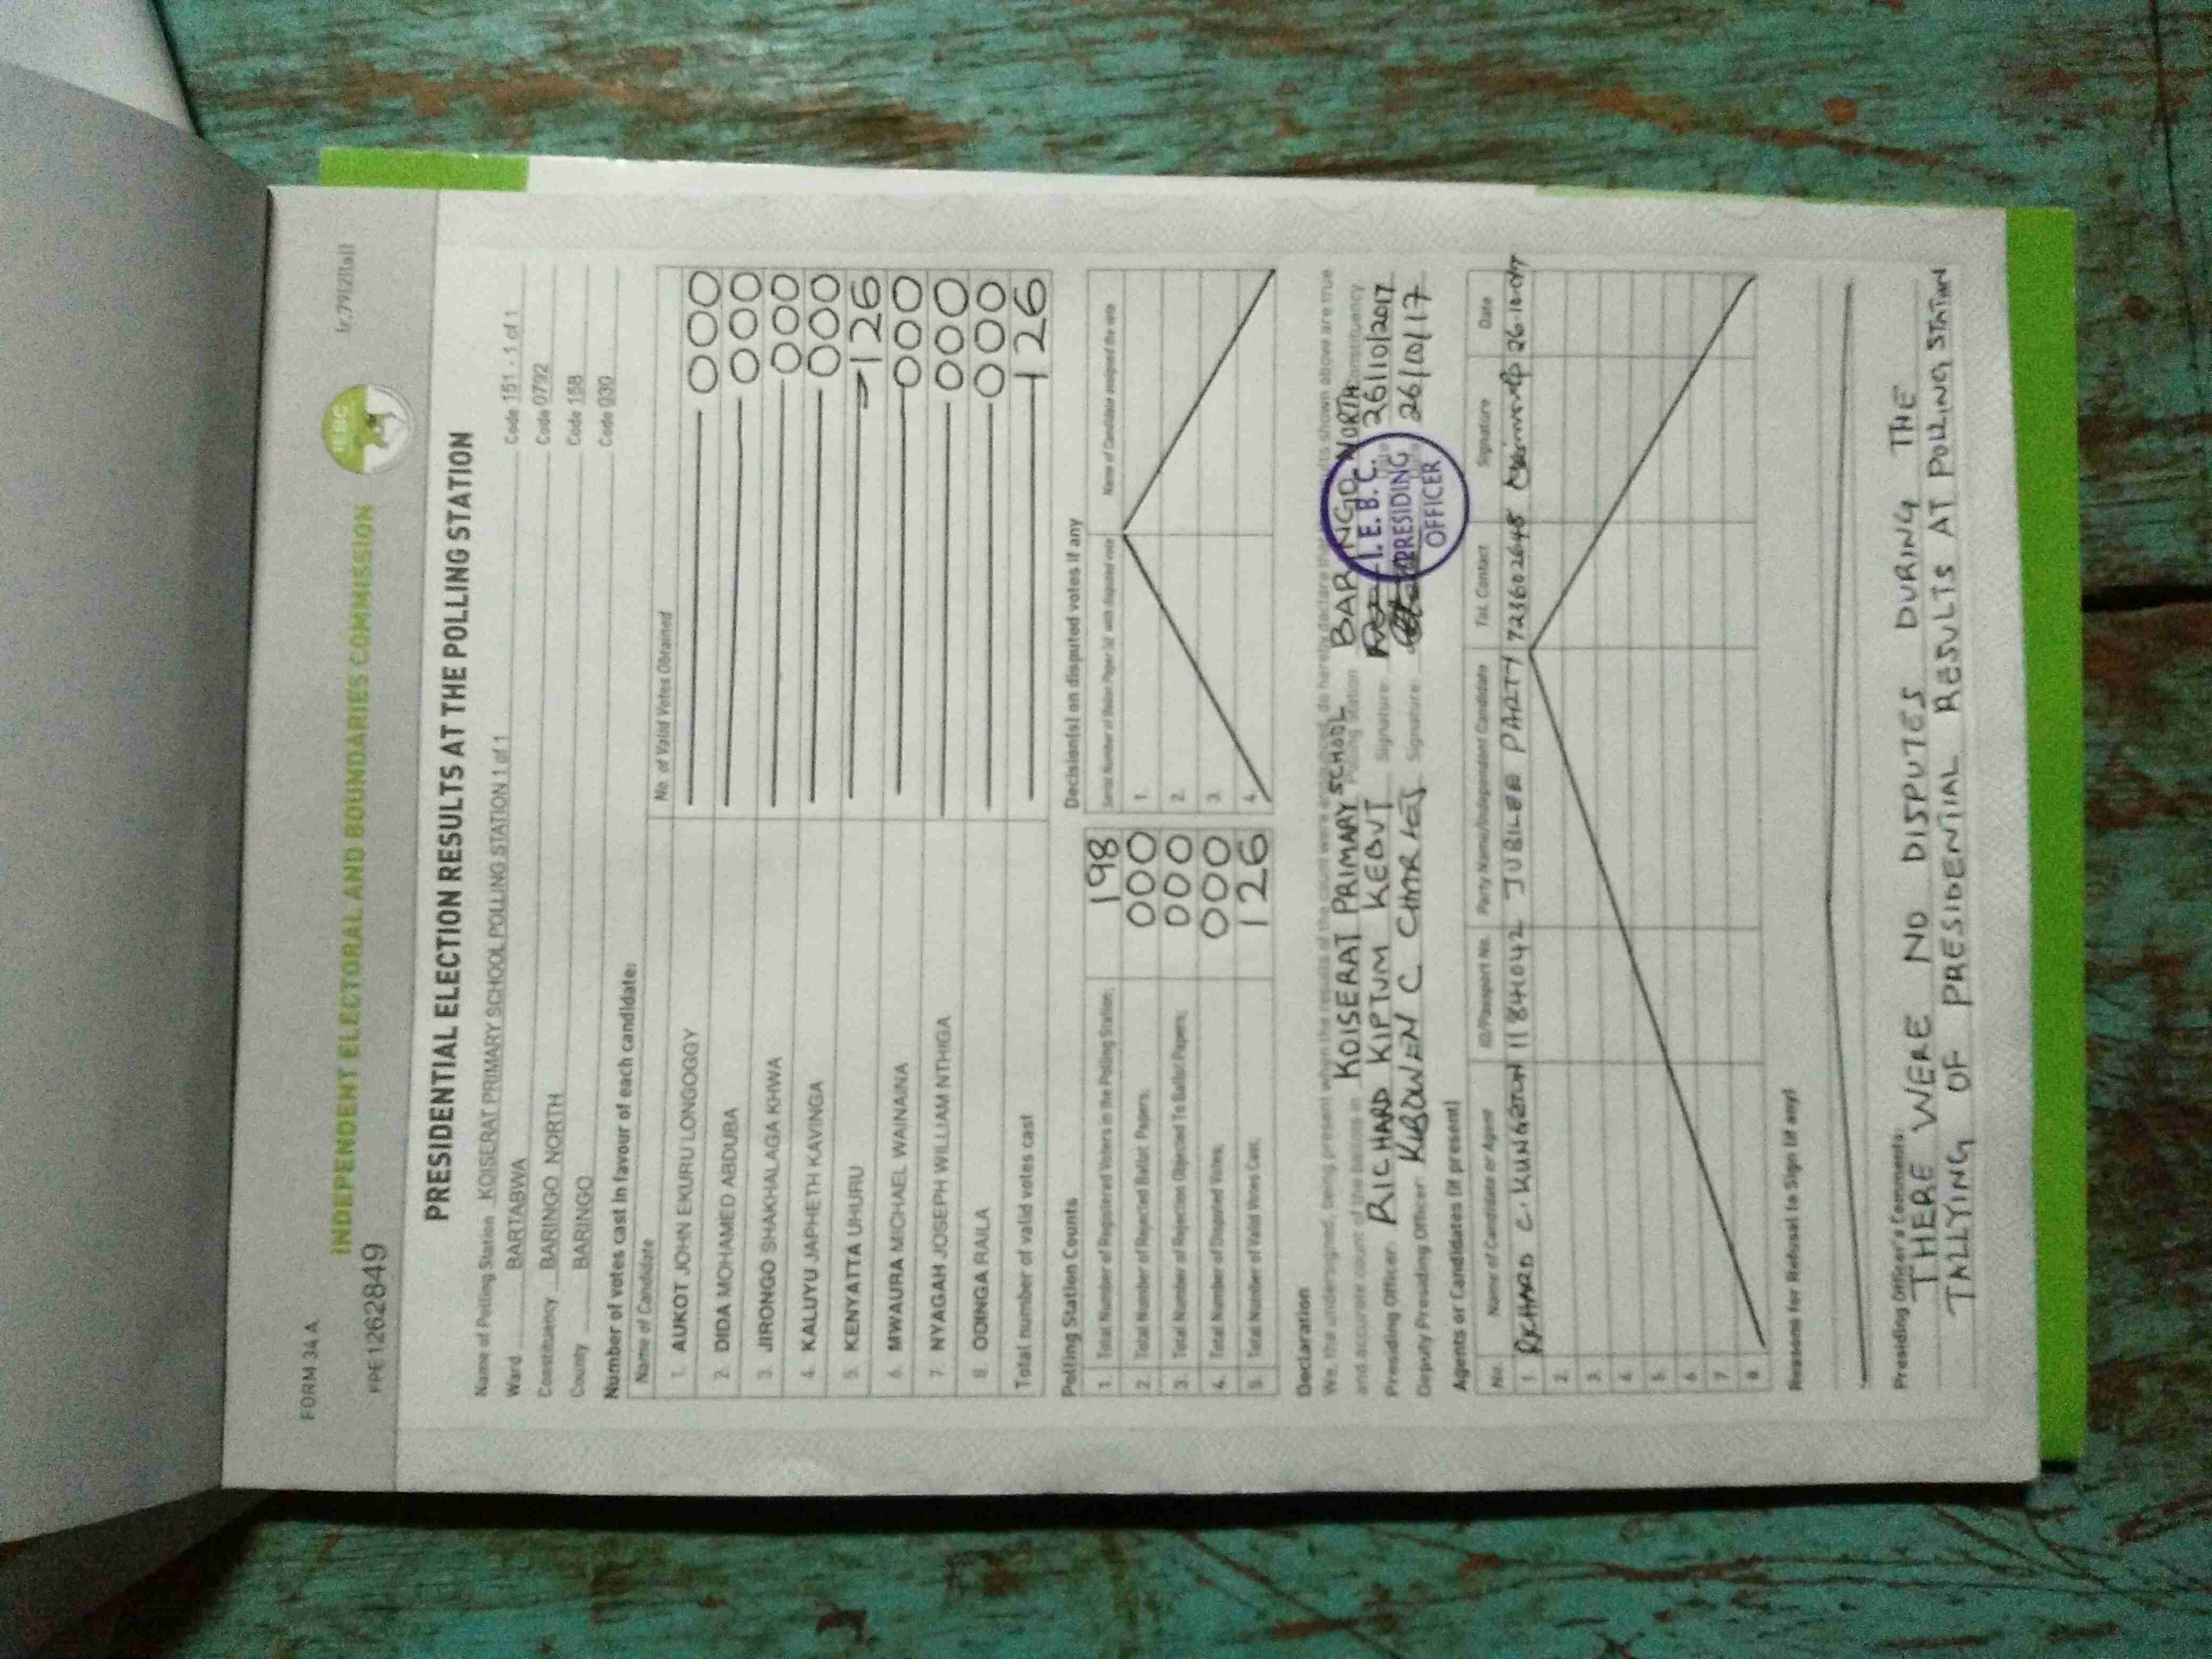 FORM 34 A
[r.79(2)(a)]
INDEPENDENT ELECTORAL AND BOUNDARIES COMMISSION
IEBC
PPE1262849
PRESIDENTIAL ELECTION RESULTS AT THE POLLING STATION
Name of Polling Station KOISERAT PRIMARY SCHOOL POLLING STATION 1 of 1 Code 151 - 1 of 1
Ward BARTABWA Code 0792
Constituency BARINGO NORTH Code 158
County BARINGO Code 030
Number of votes cast in favour of each candidate:
Name of Candidate No. of Valid Votes Obtained
1. AUKOT JOHN EKURU LONGOGGY 000
2. DIDA MOHAMED ABDUBA 000
3. JIRONGO SHAKHALAGA KHWA 000
4. KALUYU JAPHETH KAVINGA 000
5. KENYATTA UHURU 126
6. MWAURA MICHAEL WAINAINA 000
7. NYAGAH JOSEPH WILLIAM NTHIGA 000
8. ODINGA RAILA 000
Total number of valid votes cast 126
Polling Station Counts
1. Total Number of Registered Voters in the Polling Station; 198
2. Total Number of Rejected Ballot Papers; 000
3. Total Number of Rejection Objected To Ballot Papers; 000
4. Total Number of Disputed Votes; 000
5. Total Number of Valid Votes Cast; 126
Decision(s) on disputed votes if any
Serial Number of Ballot Paper (s) with disputed vote Name of Candidate assigned the vote
1.
2.
3.
4.
Declaration
We, the undersigned, being present when the results of the count were announced, do hereby declare that the results shown above are true
and accurate count of the ballots in KOISERAT PRIMARY SCHOOL Polling Station BARINGO NORTH Constituency.
Presiding Officer: RICHARD KIPTUM KEBUT Signature: 26/10/2017
Deputy Presiding Officer: KIBOWEN C. CHARLES Signature: 26/10/17
I.E.B.C.
PRESIDING
OFFICER
Agents or Candidates (if present)
No. Name of Candidate or Agent ID/Passport No. Party Name/Independent Candidate Tel. Contact Signature Date
1. RICHARD C. 11841042 JUBILEE PARTY 723602645 26.10.017
2.
3.
4.
5.
6.
7.
8.
Reasons for Refusal to Sign (if any)
Presiding Officer's Comments:
THERE WERE NO DISPUTES DURING THE
TALLYING OF PRESIDENTIAL RESULTS AT POLLING STATION